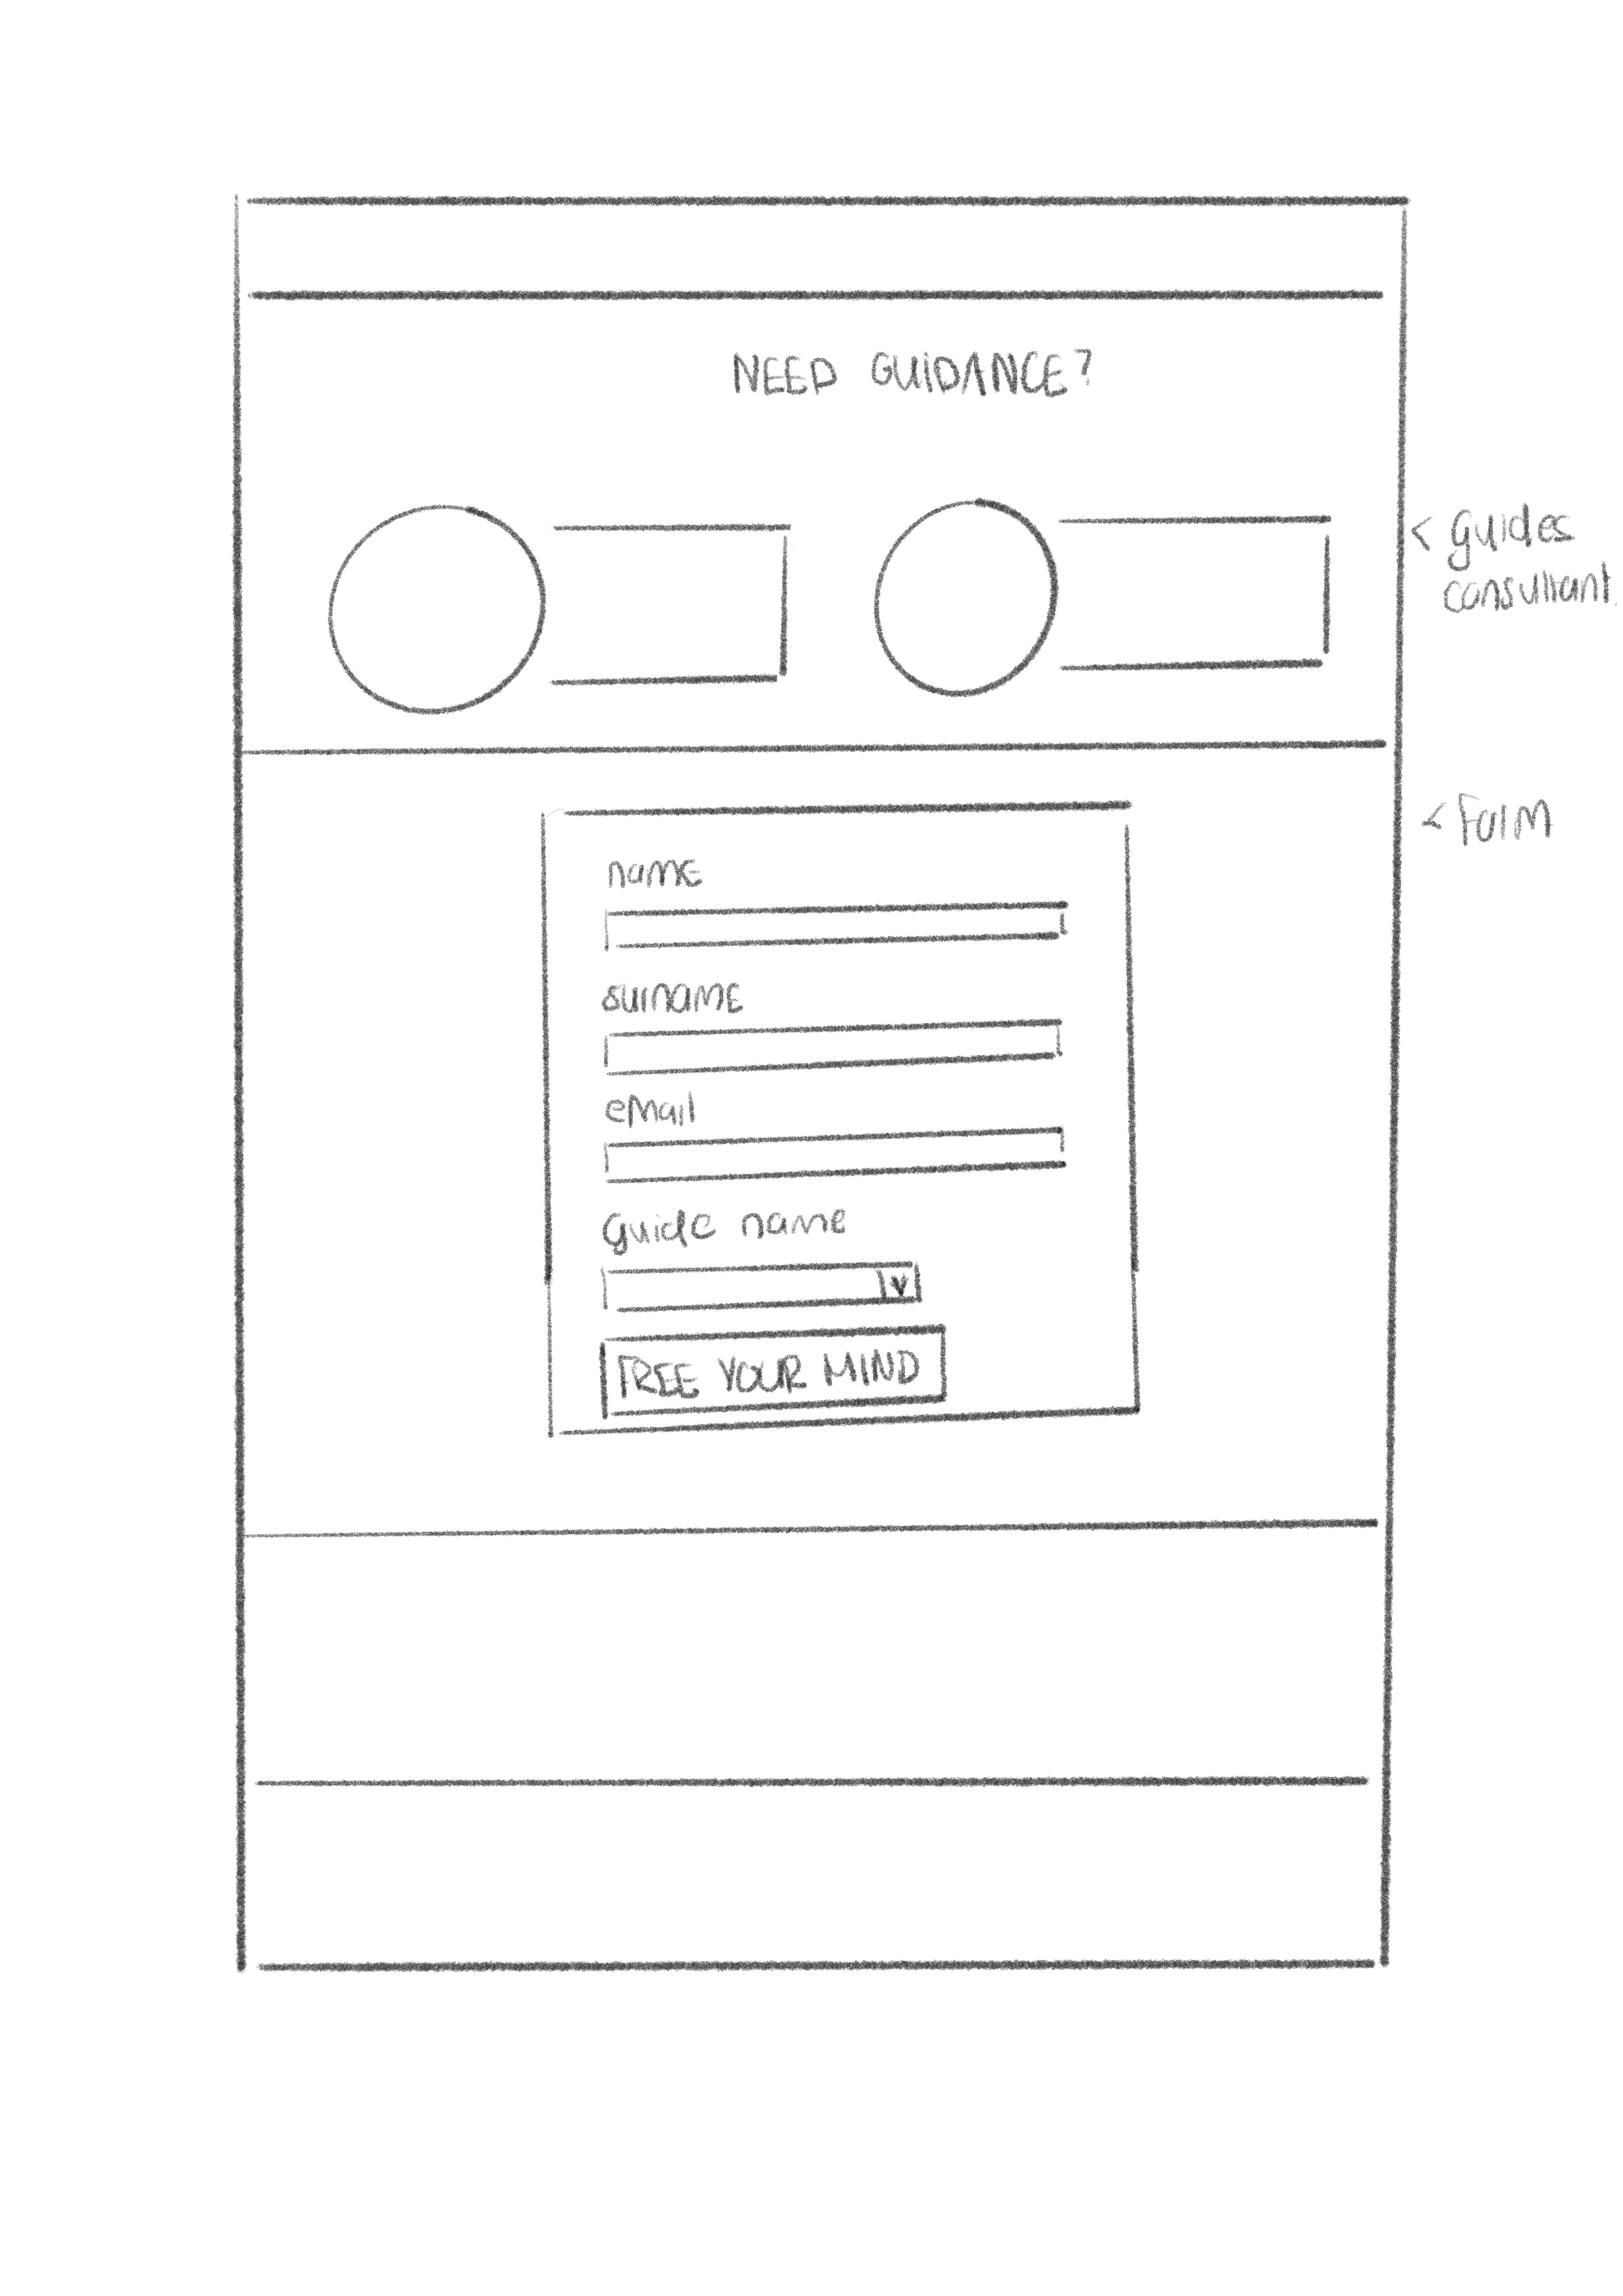 NEED GUIDANCE?
< guides
consultant
name
< Form
surname
email
guide name
v
FREE YOUR MIND